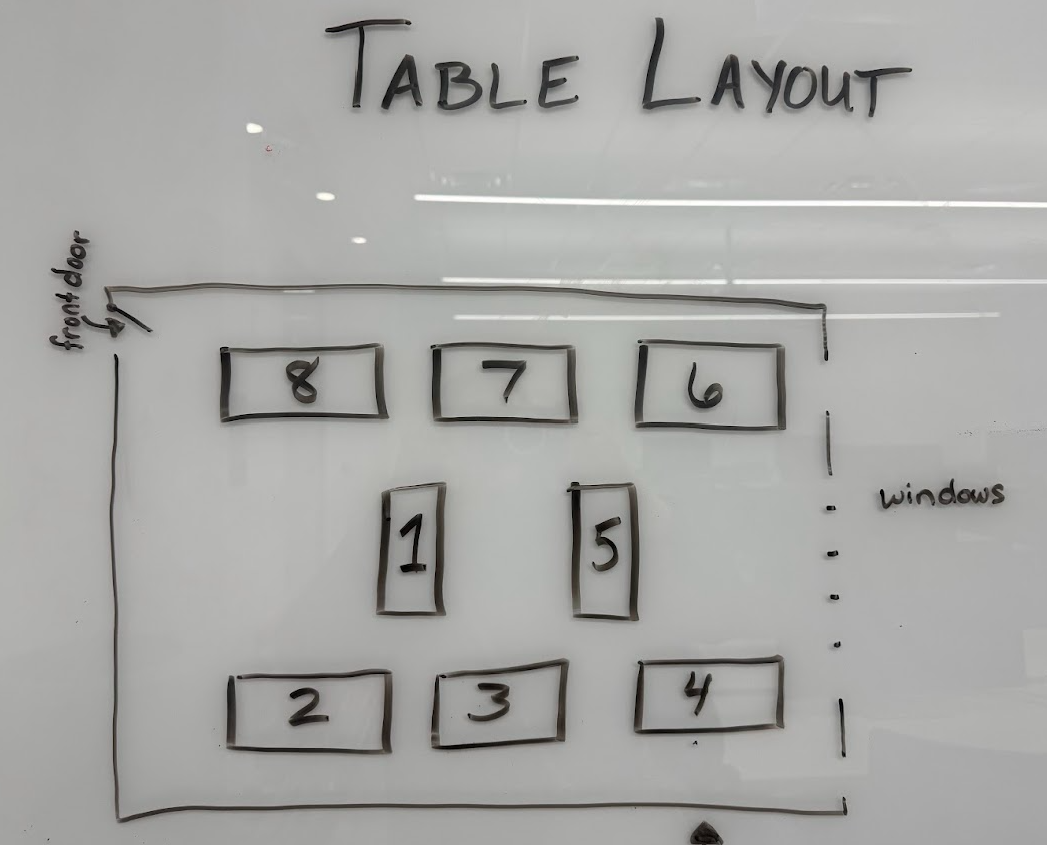 TABLE LAYOUT
front door
8 7 6
windows
1 5
2 3 4